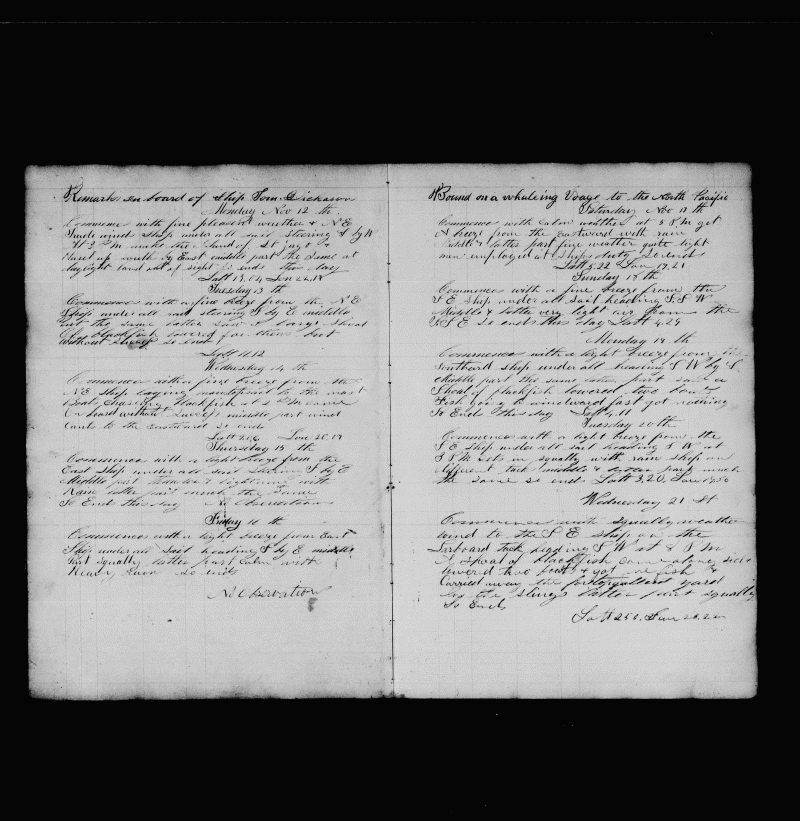 Remarks on board of Ship Tom Dickason
Monday Nov 12 th
Commence with fine pleasant weather & N E
Trade winds ship under all sail steering S by W
At 3 P M make the Island of St
South by East middle part the same at
daylight land out of sight So ends this day
Latt 13,04 Lon 24,18
Tuesday 13 th
Commence with a fine breeze from the N E
Ship under all sail steering S by E middle
part the same latter saw a large shoal
of blackfish lowered for them but
without success so ends
Latt 11 12
Wednesday 14 th
Commence with a fine breeze from the
N E ship laying maintopsail to the mast
Boats chasing blackfish at 2 P M came
On board without success middle part wind
to the eastward so ends
Latt Lon 25,19
Thursday 15 th
Commence with a light breeze from the
East ship under all sail steering S by E
Middle part thunder & lightning with
Rain latter part much the same
So Ends this day No Observation
Friday 16 th
Commence with a light breeze from East
Ship under all sail heading S by E middle
Part squally latter part calm with
Heavy Rain So ends
No Observation
Bound on a whaleing Voyage to the North Pacific
Saturday Nov 17 th
Commence with calm weather at 3 P M got
A breeze from the Eastward with rain
Middle & latter part fine weather quite light
men employed at ships duty So ends
Latt 5,22 Lon 19,21
Sunday 18 th
Commence with a fine breeze from the
S E ship under all sail heading S S W
Middle & latter very light air from the
S S E So ends this day Latt 4,24
Monday 19 th
Commence with a light breeze from the
Southard ship under all heading S W by S
Middle part the same latter part saw a
Shoal of blackfish lowered two boats
Fish going to windward fast got nothing
So Ends this day Latt 4,11
Tuesday 20 th
Commence with a light breeze from the
S E ship under all sail heading S W at
3 P M set in squally with rain ship on
different tacks middle & latter part much
the same so end Latt 3,20, Lon 19 50
Wednesday 21 st
Commence with squally weather
wind to the S E ship on the
Larboard tack heading S W at 3 P M
A shoal of blackfish came along side
lowered two boats & got one fish
Carried away the foretopgallant yard
in the slings latter part squally
So Ends
Latt 2 50, Lon 20,22